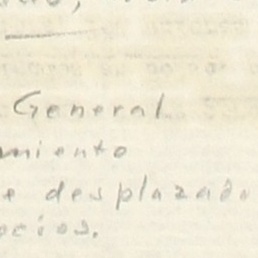 General
miento
e desplazado
ocios.